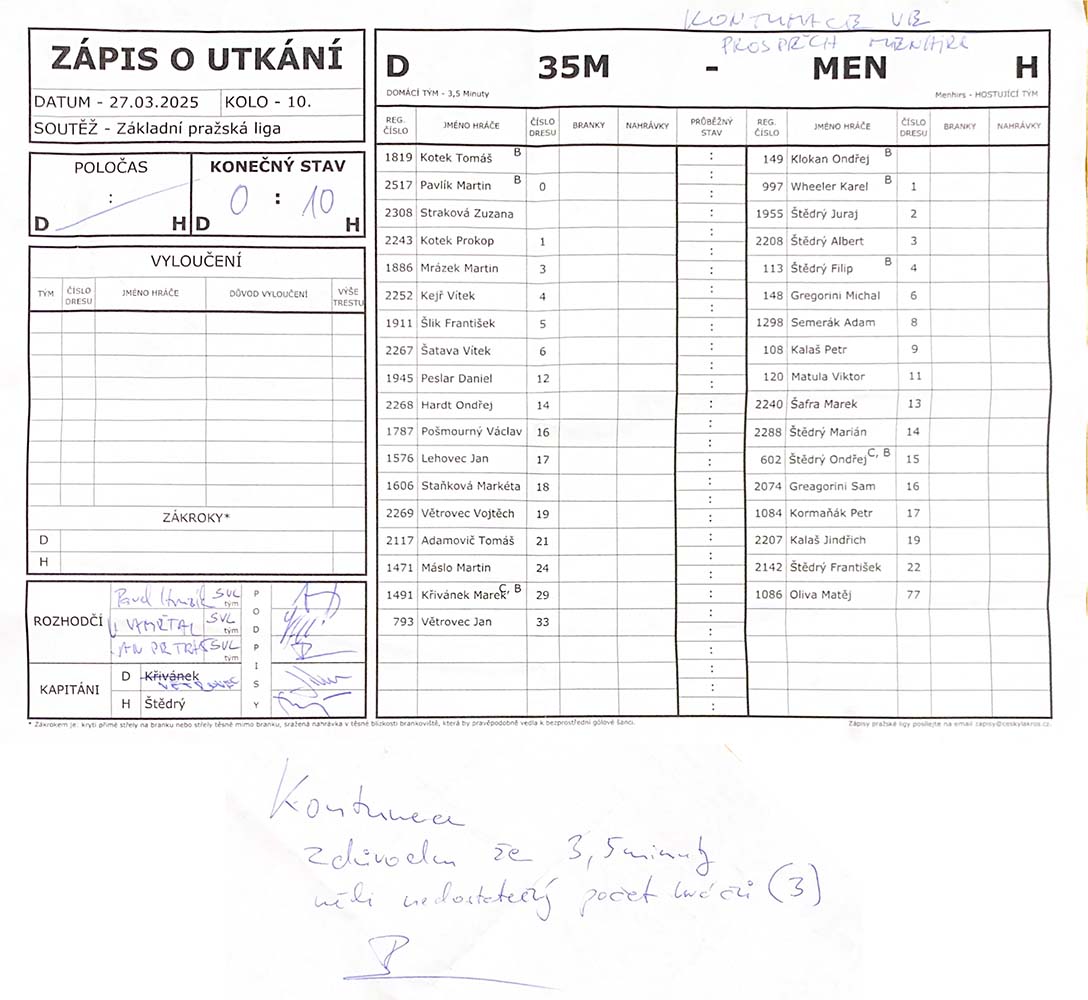 KONTUMACE VE
PROSPĚCH MENHIRS
ZÁPIS O UTKÁNÍ
DATUM - 27.03.2025 KOLO - 10.
SOUTĚŽ - Základní pražská liga
POLOČAS
:
D H
KONEČNÝ STAV
0 : 10
D H
VYLOUČENÍ
TÝM ČÍSLO DRESU JMÉNO HRÁČE DŮVOD VYLOUČENÍ VÝŠE TRESTU
ZÁKROKY*
D
H
ROZHODČÍ
Pavel SVL tým
VAMŘTAL SVL tým
SVL tým
PODPISY
KAPITÁNI
D Křivánek
VĚTROVEC
H Štědrý
D 35M - MEN H
DOMÁCÍ TÝM - 3,5 Minuty Menhirs - HOSTUJÍCÍ TÝM
REG. ČÍSLO JMÉNO HRÁČE ČÍSLO DRESU BRANKY NAHRÁVKY PRŮBĚŽNÝ STAV REG. ČÍSLO JMÉNO HRÁČE ČÍSLO DRESU BRANKY NAHRÁVKY
1819 Kotek Tomáš B : 149 Klokan Ondřej B
2517 Pavlík Martin B 0 : 997 Wheeler Karel B 1
2308 Straková Zuzana : 1955 Štědrý Juraj 2
2243 Kotek Prokop 1 : 2208 Štědrý Albert 3
1886 Mrázek Martin 3 : 113 Štědrý Filip B 4
2252 Kejř Vítek 4 : 148 Gregorini Michal 6
1911 Šlik František 5 : 1298 Semerák Adam 8
2267 Šatava Vítek 6 : 108 Kalaš Petr 9
1945 Peslar Daniel 12 : 120 Matula Viktor 11
2268 Hardt Ondřej 14 : 2240 Šafra Marek 13
1787 Pošmourný Václav 16 : 2288 Štědrý Marián 14
1576 Lehovec Jan 17 : 602 Štědrý Ondřej C, B 15
1606 Staňková Markéta 18 : 2074 Greagorini Sam 16
2269 Větrovec Vojtěch 19 : 1084 Kormaňák Petr 17
2117 Adamovič Tomáš 21 : 2207 Kalaš Jindřich 19
1471 Máslo Martin 24 : 2142 Štědrý František 22
1491 Křivánek Marek C, B 29 : 1086 Oliva Matěj 77
793 Větrovec Jan 33 :
* Zákrokem je: krytí přímé střely na branku nebo střely těsně mimo branku, sražená nahrávka v těsné blízkosti brankoviště, která by pravěpodobně vedla k bezprostřední gólové šanci.
Zápisy pražské ligy posílejte na email zapisy@ceskylakros.cz.
Kontumace
z důvodu že 3,5 minuty
měli nedostatečný počet hráčů (3)